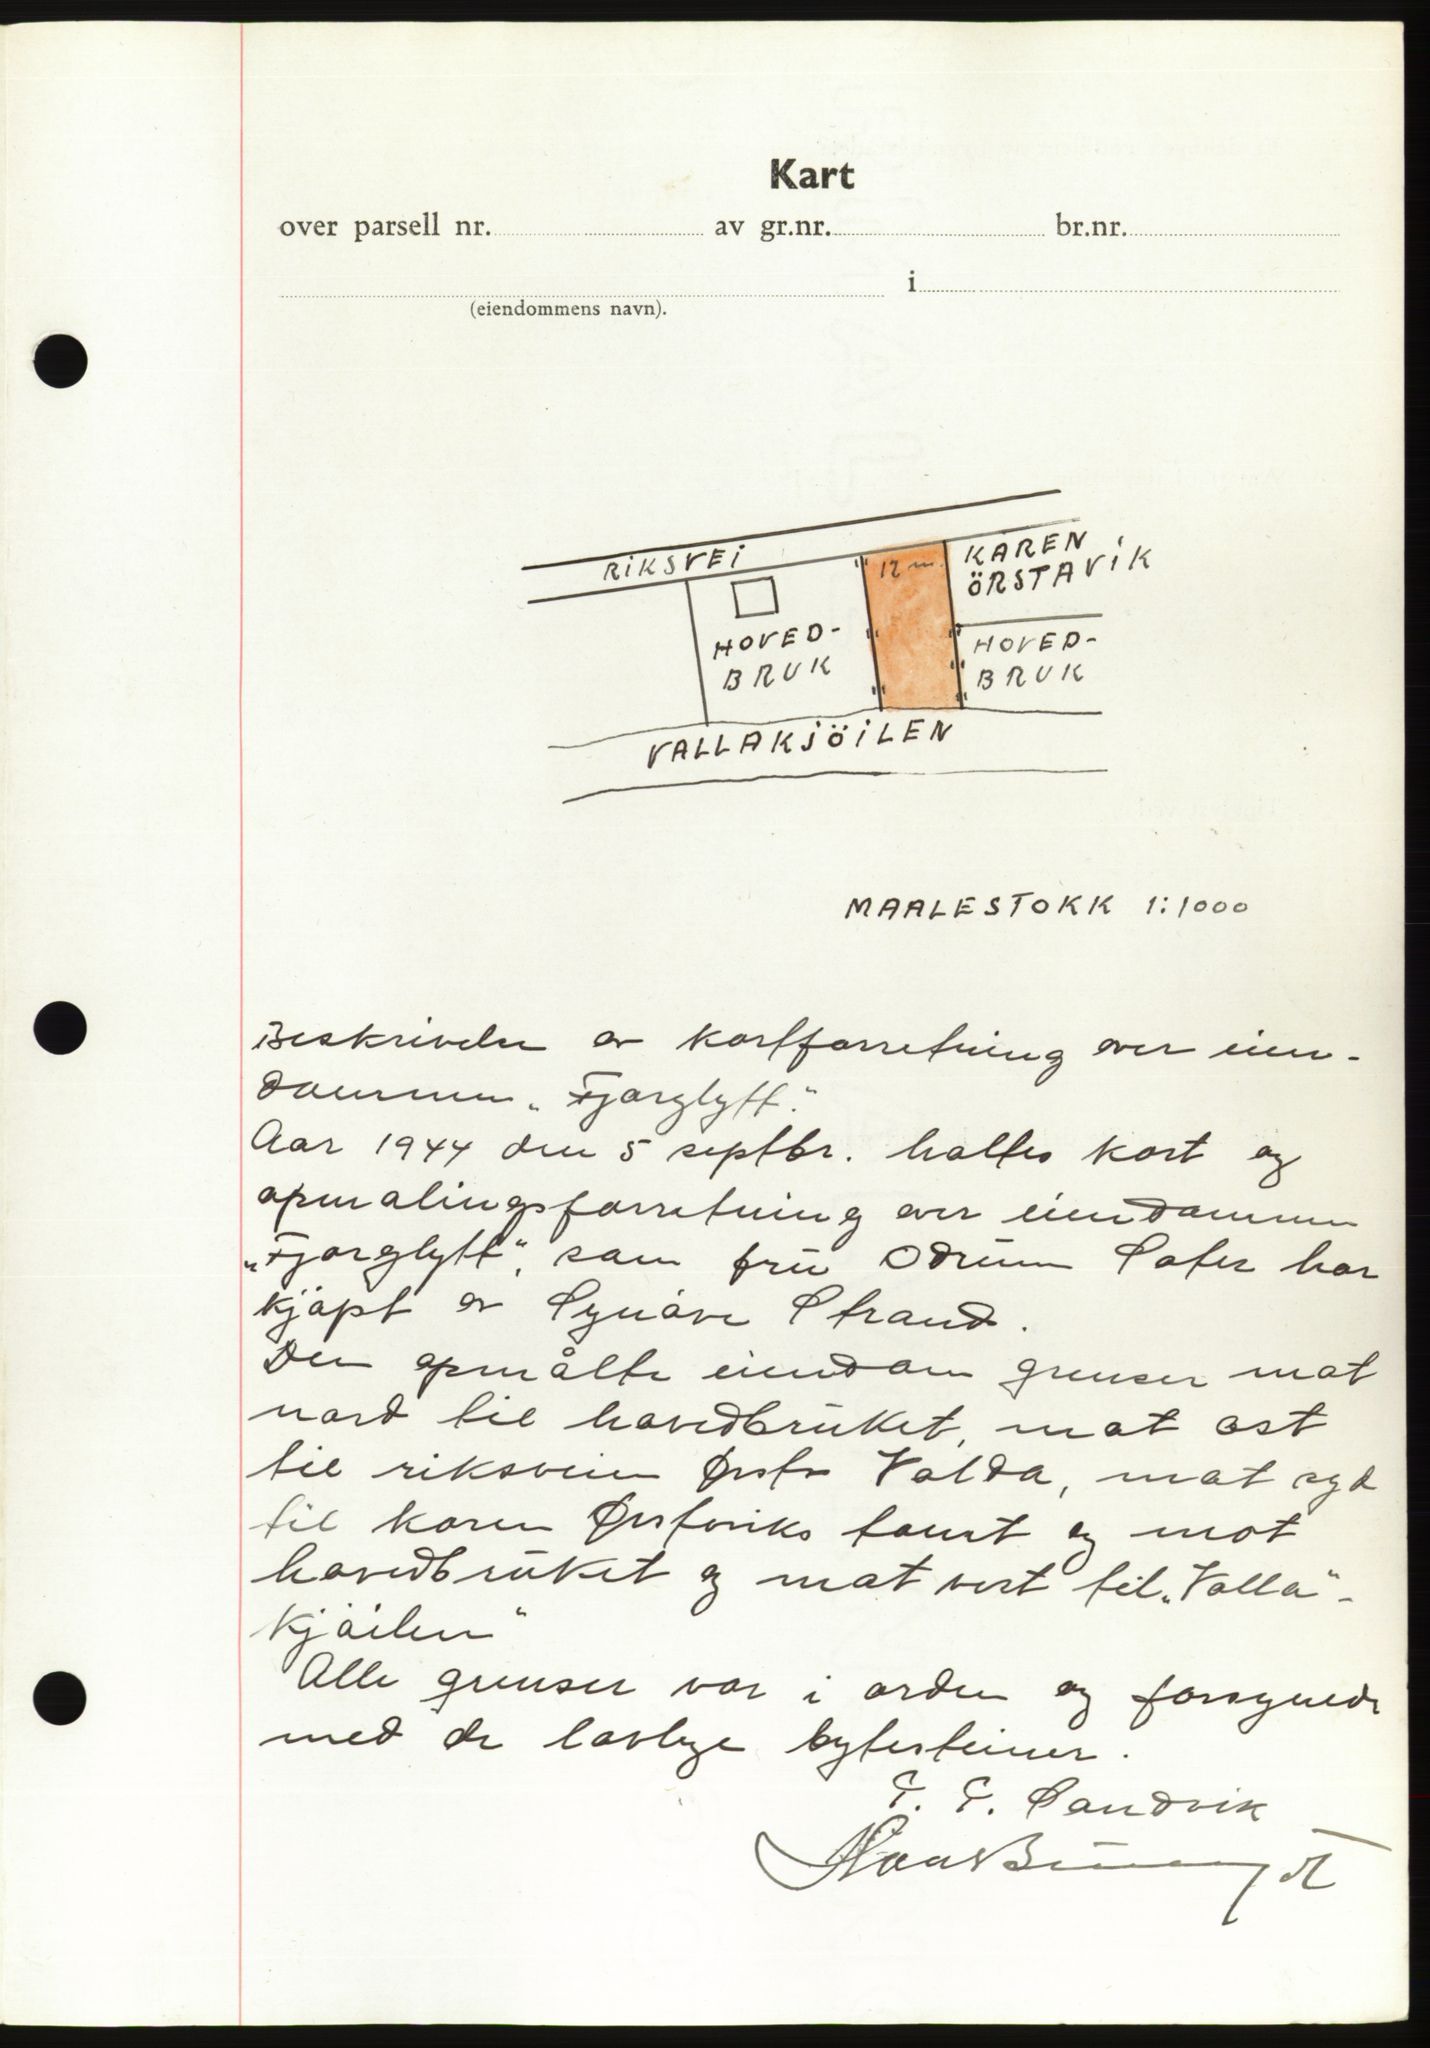 Kart
over parsell nr. av gr.nr. br.nr.
i
(eiendommens navn).
RIKSVEI
12 m.
KAREN
ÖRSTAVIK
HOVED-
BRUK
HOVED-
BRUK
VALLAKJÖILEN
MAALESTOKK 1:1000
Beskrivelse av kartforretning over eien-
dommen „Fjorglytt."
Aar 1944 den 5 septbr. holtes kart og
opmalingsforretning over eiendommen
„Fjorglytt", som frü Odrün har
kjøpt av Synøve Strand.
Den opmålte eiendom grenser mot
nord til hovedbrüket, mot øst
til riksveien Ørsta Volda, mot syd
til Karen Ørstaviks tomt og mot
hovedbrüket og mot vest til „Valla"-
kjøilen"
Alle grenser var i orden og forsynede
med de lovlige bytesteiner.
Sandvik